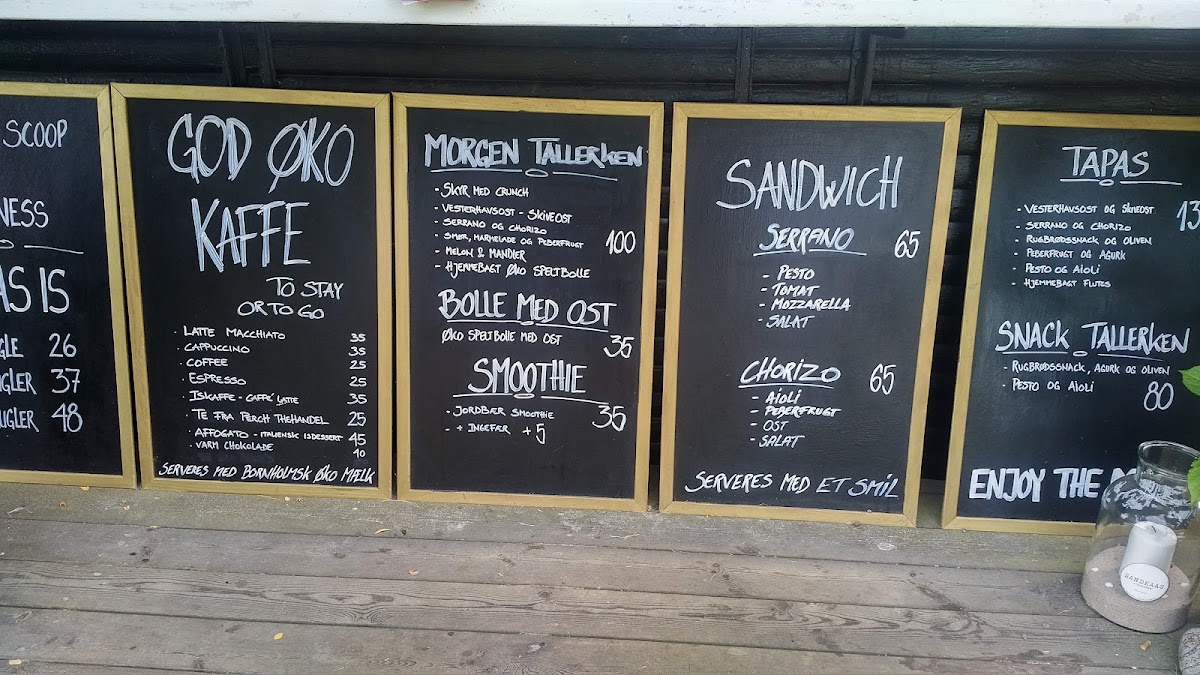 SCOOP
NESS
AS IS
GLE 26
UGLER 37
UGLER 48
GOD ØKO
KAFFE
TO STAY
OR TO GO
· LATTE MACCHIATO 35
· CAPPUCCINO 35
· COFFEE 25
· ESPRESSO 25
· ISKAFFE - CAFFÉ LATTE 35
· TE FRA PERCH THEHANDEL 25
· AFFOGATO - ITALIENSK ISDESSERT 45
· VARM CHOKOLADE 40
SERVERES MED BORNHOLMSK ØKO MÆLK
MORGEN TALLERKEN
- SKYR MED CRUNCH
- VESTERHAVSOST - SKIVEOST
- SERRANO OG CHORIZO
- SMØR, MARMELADE OG PEBERFRUGT 100
- MELON & MANDLER
- HJEMMEBAGT ØKO SPELTBOLLE
BOLLE MED OST
ØKO SPELTBOLLE MED OST 35
SMOOTHIE
- JORDBÆR SMOOTHIE 35
- + INGEFÆR +5
SANDWICH
SERRANO 65
- PESTO
- TOMAT
- MOZZARELLA
- SALAT
CHORIZO 65
- AIOLI
- PEBERFRUGT
- OST
- SALAT
SERVERES MED ET SMIL
TAPAS
- VESTERHAVSOST OG SKIVEOST
- SERRANO OG CHORIZO
- RUGBRØDSSNACK OG OLIVEN
- PEBERFRUGT OG AGURK
- PESTO OG AIOLI
- HJEMMEBAGT FLUTES
SNACK TALLERKEN
- RUGBRØDSSNACK, AGURK OG OLIVEN
- PESTO OG AIOLI 80
ENJOY THE
SANDKAAS